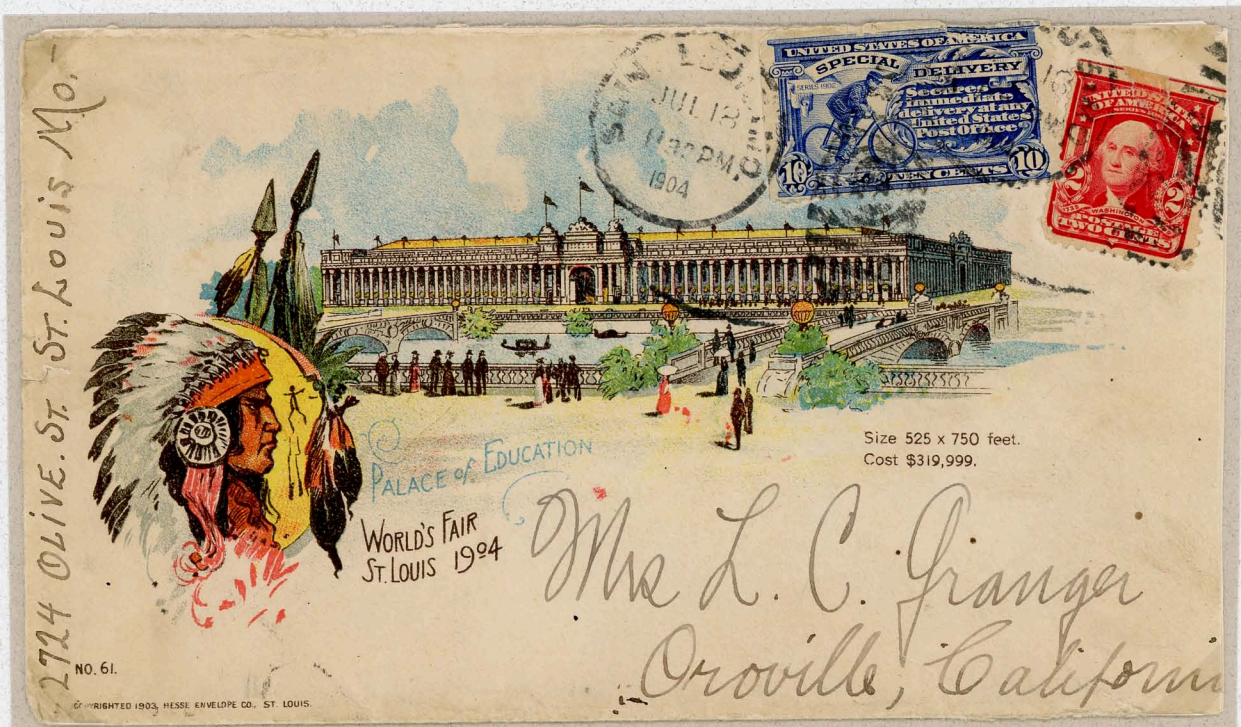 2724 OLIVE. ST. ST. LOUIS MO.-
SAINT LOUIS, MO.
JUL 18
11 30 PM
1904
UNITED STATES OF AMERICA
SPECIAL DELIVERY
SERIES 1902
Secures
immediate
delivery at any
United States
Post Office
10 TEN CENTS 10
UNITED STATES
OF AMERICA
SERIES 1902
2 2
1732 WASHINGTON
POSTAGE
TWO CENTS
Size 525 x 750 feet.
Cost $319,999.
PALACE of EDUCATION
WORLD'S FAIR
ST. LOUIS 1904
Mrs L. C. Granger
Oroville, California
NO. 61.
COPYRIGHTED 1903, HESSE ENVELOPE CO., ST. LOUIS.